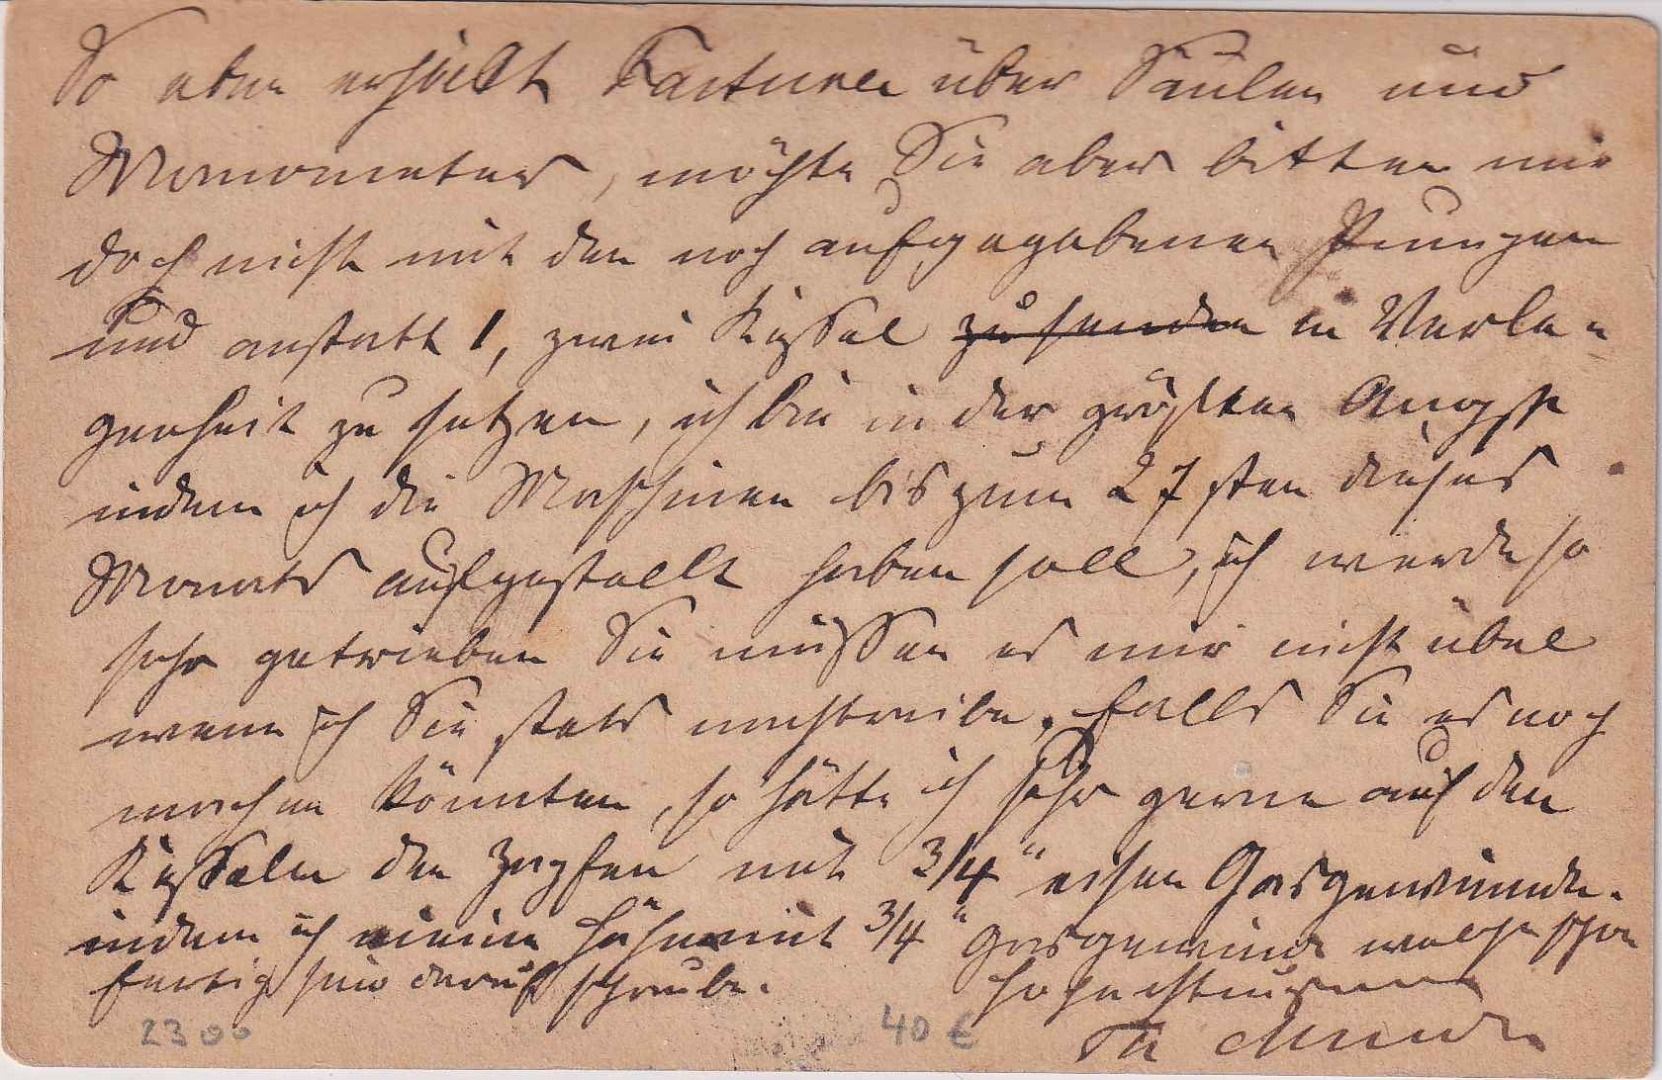 So eben erhielt Facturen über Säulen und
Manometer, möchte Sie aber bitten mir
doch nicht mit den noch aufgegebenen
und anstatt 1, zwei Kessel zu senden in Verle-
genheit zu setzen, ich bin in der größten Angst
indem ich die Maschinen bis zum 27sten dieses
Monats aufgestellt haben soll, ich werde so
sehr getrieben Sie müssen es mir nicht übel
wenn ich Sie stets nachtreibe. Falls Sie es noch
machen könnten, so hätte ich sehr gerne auf den
Kesseln den Zapfen mit 3/4" Gasgewinde.
indem ich meine Hähne mit 3/4" Gasgewinde welche schon
fertig sind darauf schraube.
2300 40 €
Th